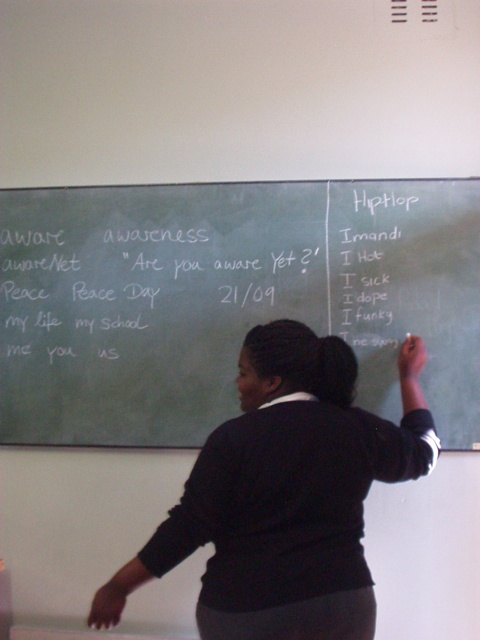 aware awareness
awareNet "Are you aware yet?"
Peace Peace Day 21/09
my life my school
me you us
HipHop
Imandi
I Hot
I sick
I dope
I funky
I ne swag